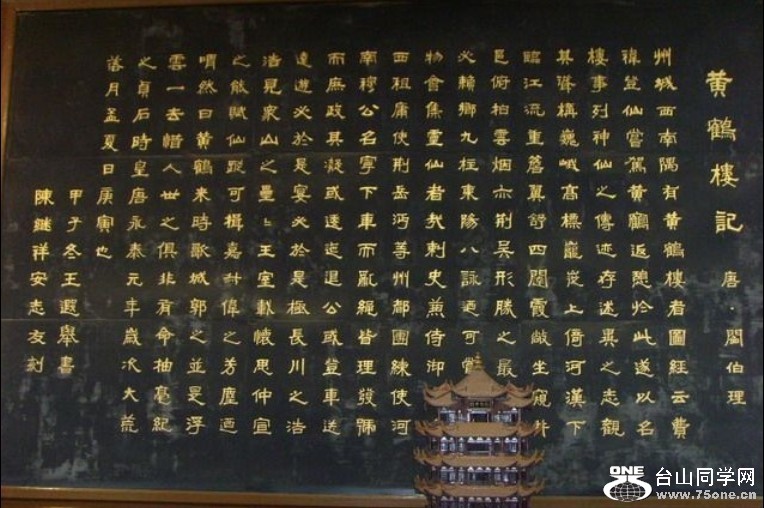 黄鶴樓記
唐·閻伯理
州城西南隅有黄鶴樓者圖經云費
禕登仙嘗駕黄鶴返憩於此遂以名
樓事列神仙之傳迹存述異之志觀
其聳構巍峨高標巃嵸上倚河漢下
臨江流重簷翼舒四闥霞敞坐窺井
邑俯拍雲烟亦荆吴形勝之最
必賴鄉九柱東陽八詠迺可賞
物會集靈仙者哉刺史兼侍御
西租庸使荆岳沔等州都團練使河
南穆公名寧下車而亂繩皆理發號
而庶政其凝或逶迤退公或登車送
遠遊必於是宴必於是極長川之浩
浩見衆山之纍〻王室載懷思仲宣
之能賦仙蹤可揖嘉叔偉之芳塵迺
喟然曰黄鶴来時歌城郭之並是浮
雲一去惜人世之俱非有命抽毫紀
之貞石時皇唐永泰元年歲次大荒
落月孟夏日庚寅也
甲子冬王遐舉書
陳継祥安志友刻
ONE
台山同学网
www.75one.cn